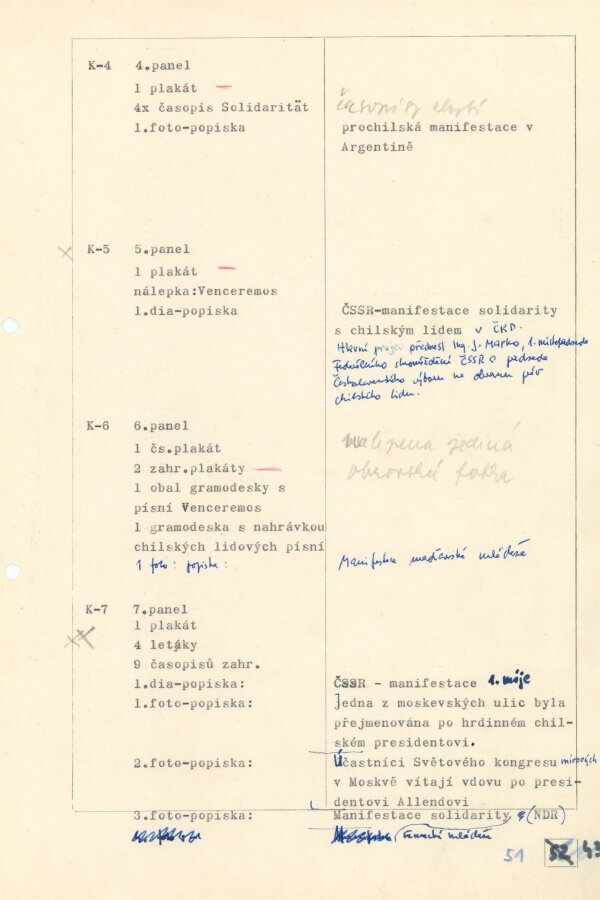 K-4 4.panel
1 plakát
4x časopis Solidarität
časopisy chybí
1.foto-popiska
prochilská manifestace v
Argentině
K-5 5.panel
1 plakát
nálepka:Venceremos
1.dia-popiska
ČSSR-manifestace solidarity
s chilským lidem v ČKD.
Hlavní projev přednesl Ing. J. Marko, 1. místopředseda
Federálního shromáždění ČSSR a předseda
Československého výboru na obranu práv
chilského lidu.
K-6 6.panel
1 čs.plakát
nalepena jediná
2 zahr.plakáty
obrovská fotka
1 obal gramodesky s
písní Venceremos
1 gramodeska s nahrávkou
chilských lidových písní
1 foto: popiska:
Manifestace maďarské mládeže
K-7 7.panel
1 plakát
4 letáky
9 časopisů zahr.
1.dia-popiska:
ČSSR - manifestace 1. máje
1.foto-popiska:
Jedna z moskevských ulic byla
přejmenována po hrdinném chil-
ském presidentovi.
2.foto-popiska:
Účastníci Světového kongresu mírových
v Moskvě vítají vdovu po presi-
dentovi Allendovi
3.foto-popiska:
Manifestace solidarity (NDR)
německé mládeže
51 52 43